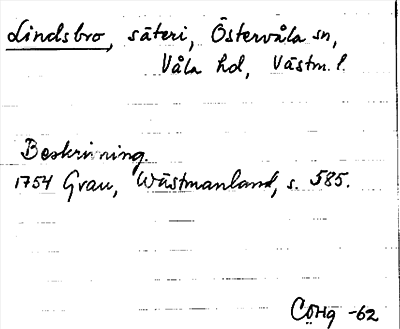 Lindsbro, säteri, Östervåla sn,
Våla hd, Västm. l.
Beskrivning.
1754 Grau, Wästmanland, s. 585.
CÖHg -62